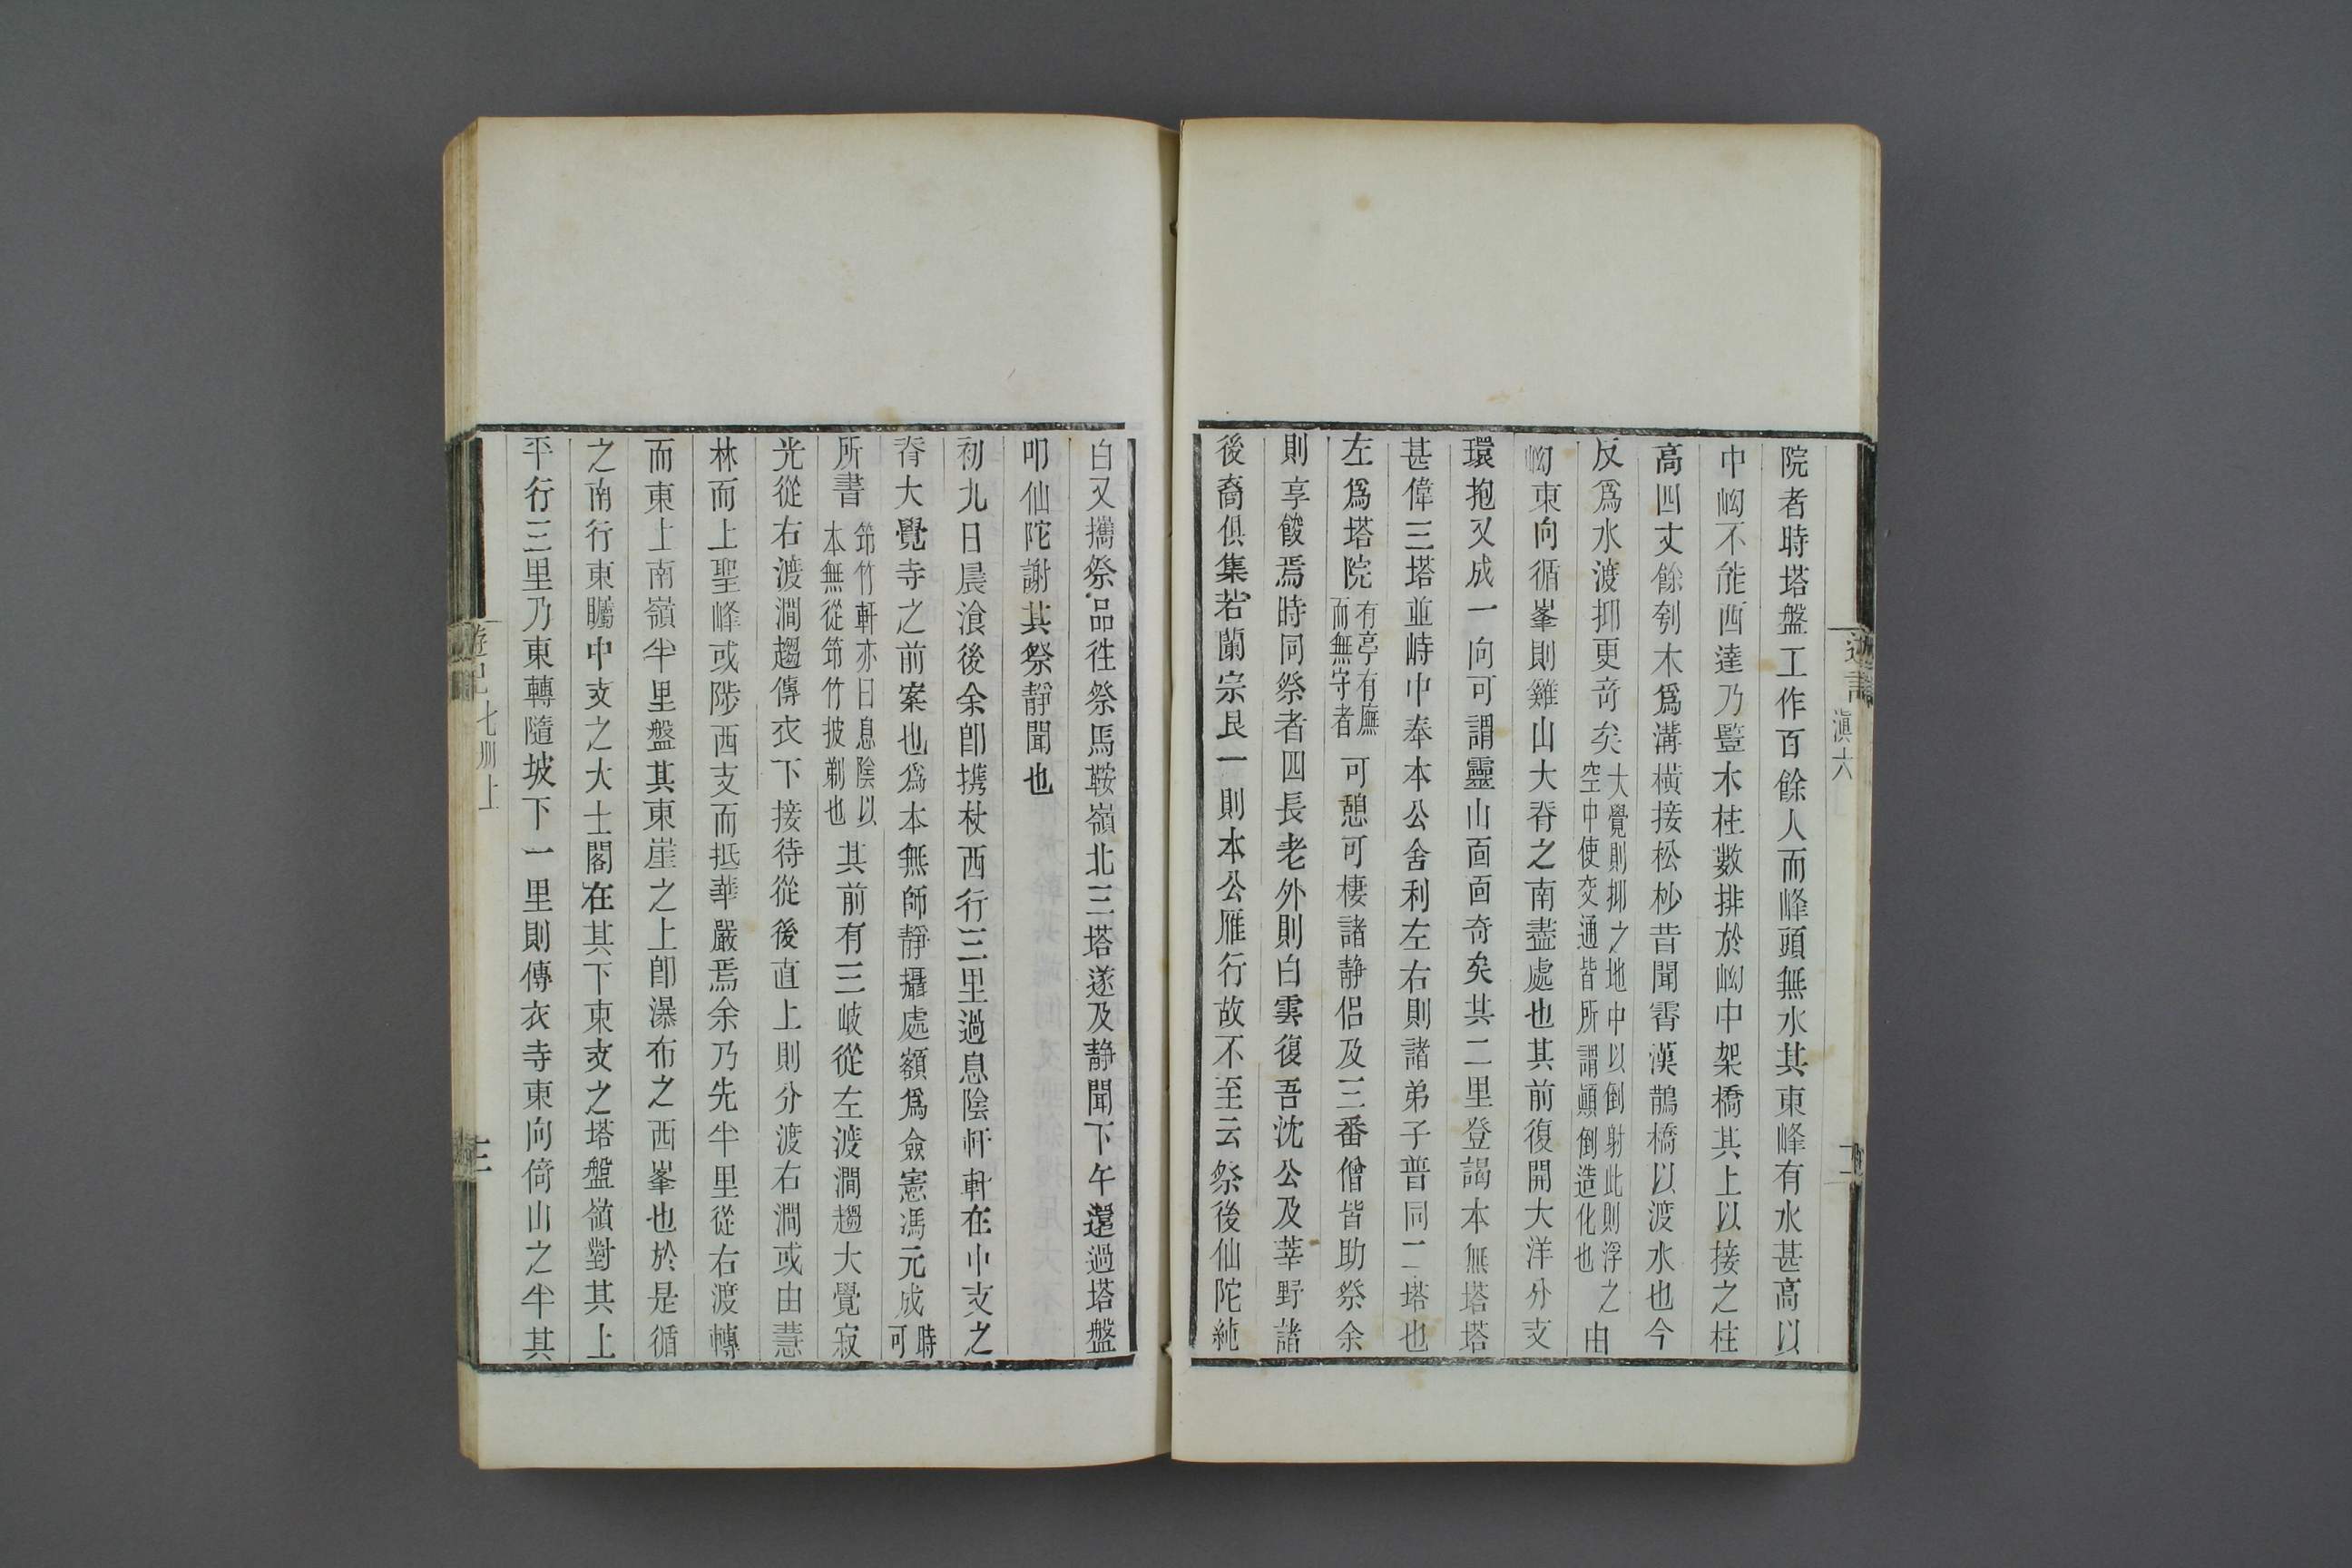 滇六
院者時塔盤工作百餘人而峰頭無水其東峰有水甚高以
中㘭不能西達乃豎木柱數排於㘭中架橋其上以接之柱
高四丈餘刳木爲溝橫接松杪昔聞霄漢鵲橋以渡水也今
反爲水渡抑更奇矣大覺則抑之地中以倒射此則浮之空中使交通皆所謂顚倒造化也由
㘭東向循峯則雞山大脊之南盡處也其前復開大洋分支
環抱又成一向可謂靈山面面奇矣共二里登謁本無塔塔
甚偉三塔並峙中奉本公舍利左右則諸弟子普同二塔也
左爲塔院有亭有廡而無守者可憩可棲諸静侣及三番僧皆助祭余
則享餕焉時同祭者四長老外則白雲復吾沈公及莘野諸
後裔俱集若蘭宗艮一則本公雁行故不至云祭後仙陀純
白又攜祭品徃祭馬鞍嶺北三塔遂及静聞下午還過塔盤
叩仙陀謝其祭靜聞也
初九日晨湌後余卽携杖西行三里過息陰軒軒在中支之
脊大覺寺之前案也爲本無師靜攝處額爲僉憲馮元成時可
所書筇竹軒亦曰息陰以本無從筇竹披剃也其前有三岐從左渡澗趨大覺寂
光從右渡澗趨傳衣下接待從後直上則分渡右澗或由慧
林而上聖峰或陟西支而抵華嚴焉余乃先半里從右渡轉
而東上南嶺半里盤其東崖之上卽瀑布之西峯也於是循
之南行東矚中支之大士閣在其下東支之塔盤嶺對其上
平行三里乃東轉隨坡下一里則傳衣寺東向倚山之半其
遊記七册上